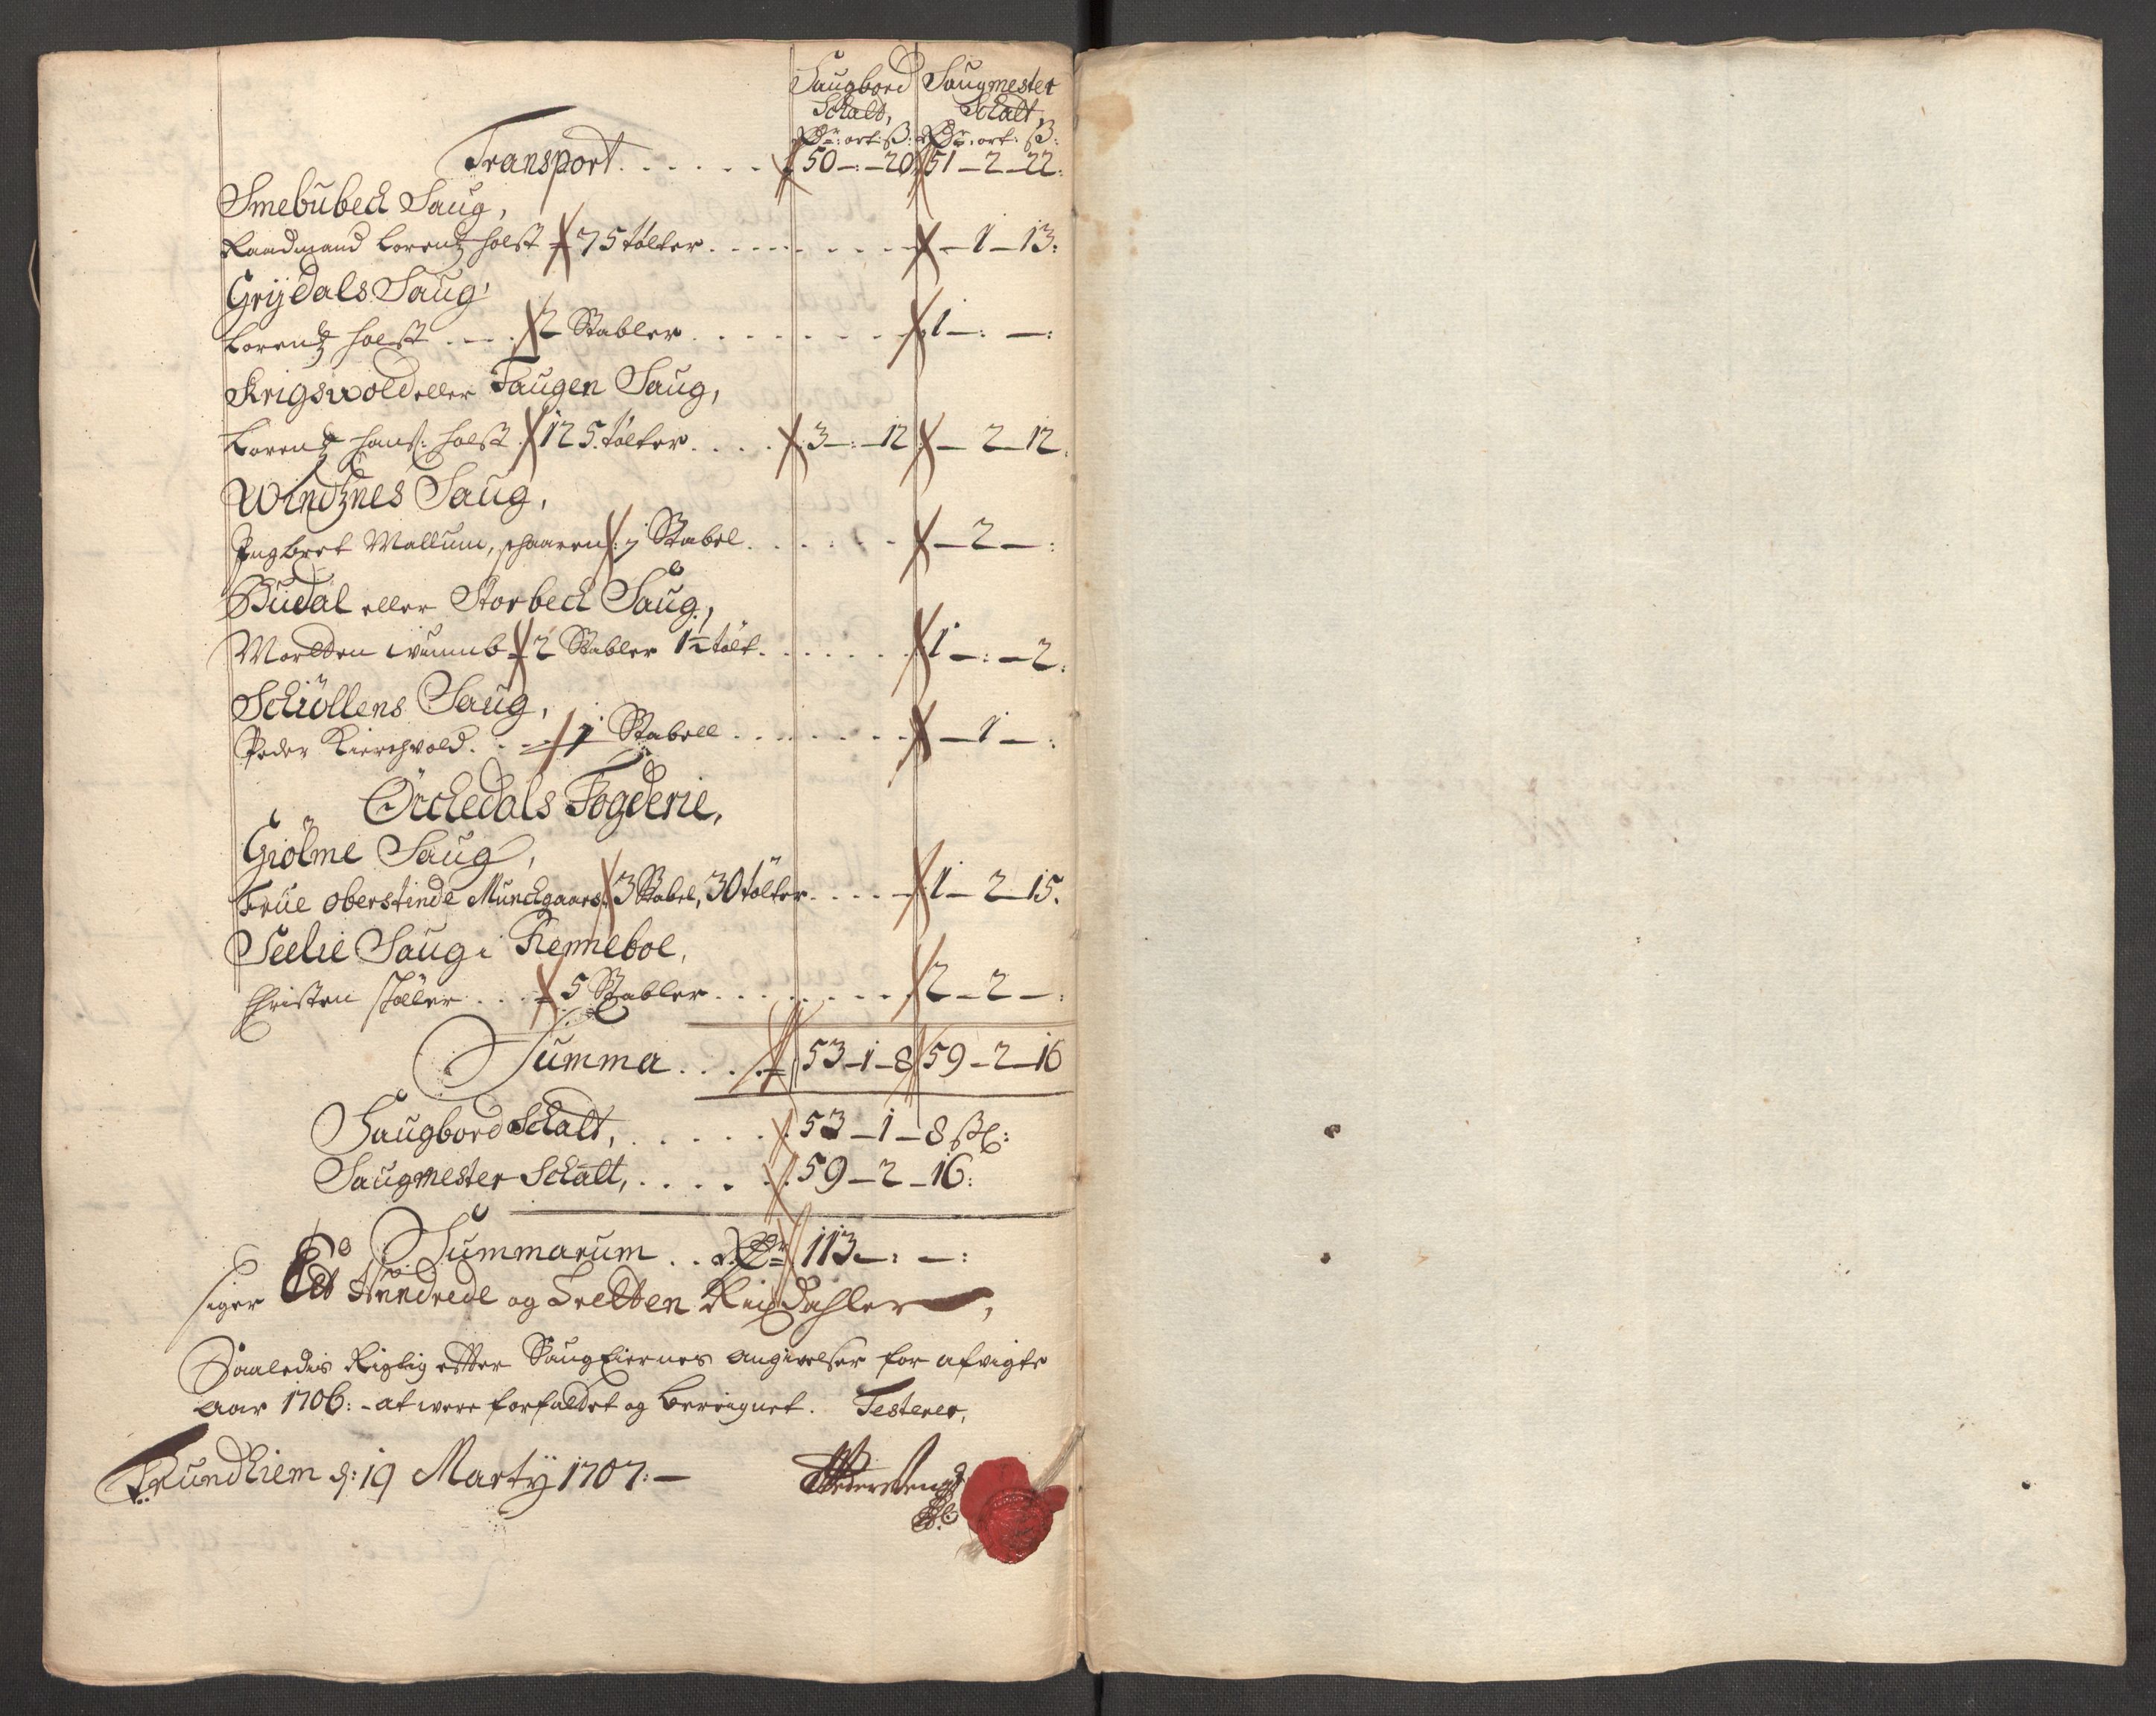 Saugbord Saugmester
Schatt, Schatt,
Rdr: ort: ß: Rdr: ort: ß:
Transport . . . . . 50 – : – 20 51 – 2 – 22:
Smebubech Saug,
Raadmand Lorentz Holst 75 tölter . . . . – 1 – 13:
Grijdals Saug,
Lorentz Holst . . . 2 Stabler . . . . 1 – : – :
Krigsvold eller Faugen Saug,
Lorentz Hanß: Holst . 125. tölter . . . . 3 – : – 12 – 2 – 12.
Windznes Saug,
Ingbret Mallum, : 1 Stabel . . . . – 2 – :
Budal eller Storbech Saug,
2 Stabler 1½ tölt . . . . 1 – : – 2:
Schiöllens Saug,
Peder Kierchvold . . . 1 Stabell . . . . – 1 – :
Örchedals Fogderie,
Giölme Saug,
Frue Oberstinde Munchgaars 3 Stabel, 30 tölter . . . . 1 – 2 – 15.
Seelie Saug i Renneboe,
Christen . . . 5 Stabler . . . . 2 – 2 – :
Summa . . . . 53 – 1 – 8 59 – 2 – 16
Saugbord Schatt, . . . . . 53 – 1 – 8 ßl:
Saugmester Schatt, . . . . . 59 – 2 – 16:
Summarum . . Rdr 113 – : – :
siger Et Hundrede og Tretten Rixdahler,
Saaledis Rigtig efter Saugeiernes angivelser for afvigte
aar 1706: – at were forfaldet og beregnet. Testerer,
Trundhiem d: 19 Martij 1707: –